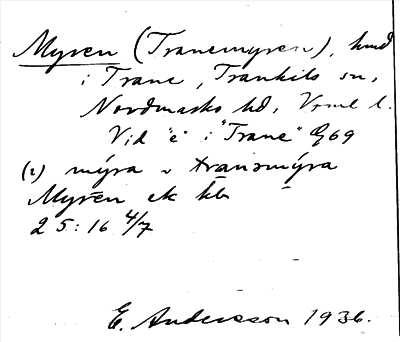 Myren (Tranemyren), hmd
i Trane, Trankils sn,
Nordmarks hd, Vrml l.
Vid "e" i "Trane" G69
(r) mýra ɴ tranəmýra
Myren ek kb
25:16 4/7
E. Andersson 1936.